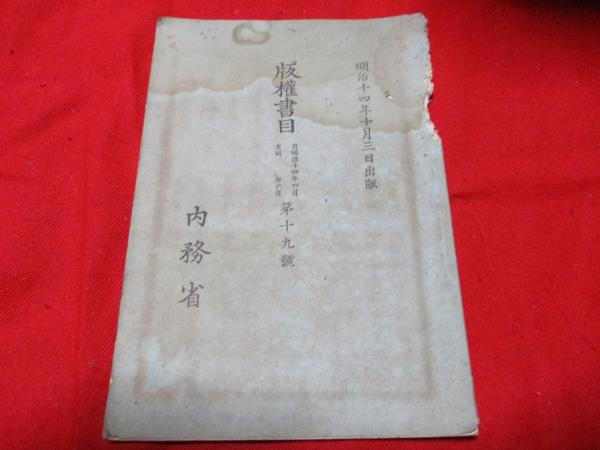 明治十四年十月三日出版
版權書目
自明治十四年四月
至同 年六月
第十九號
內務省